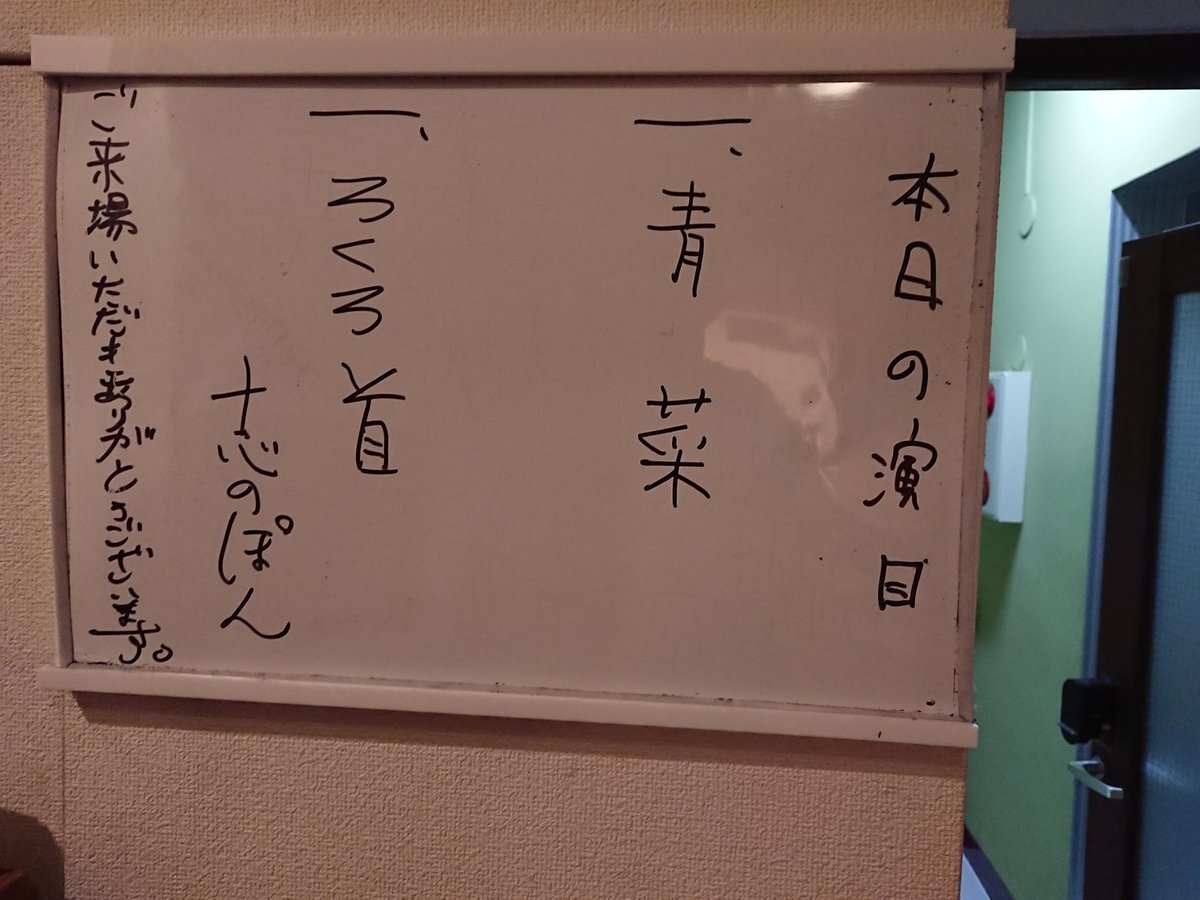 本日の演目
一、青菜
一、ろくろ首
十志のぽん
ご来場いただきありがとうございます。